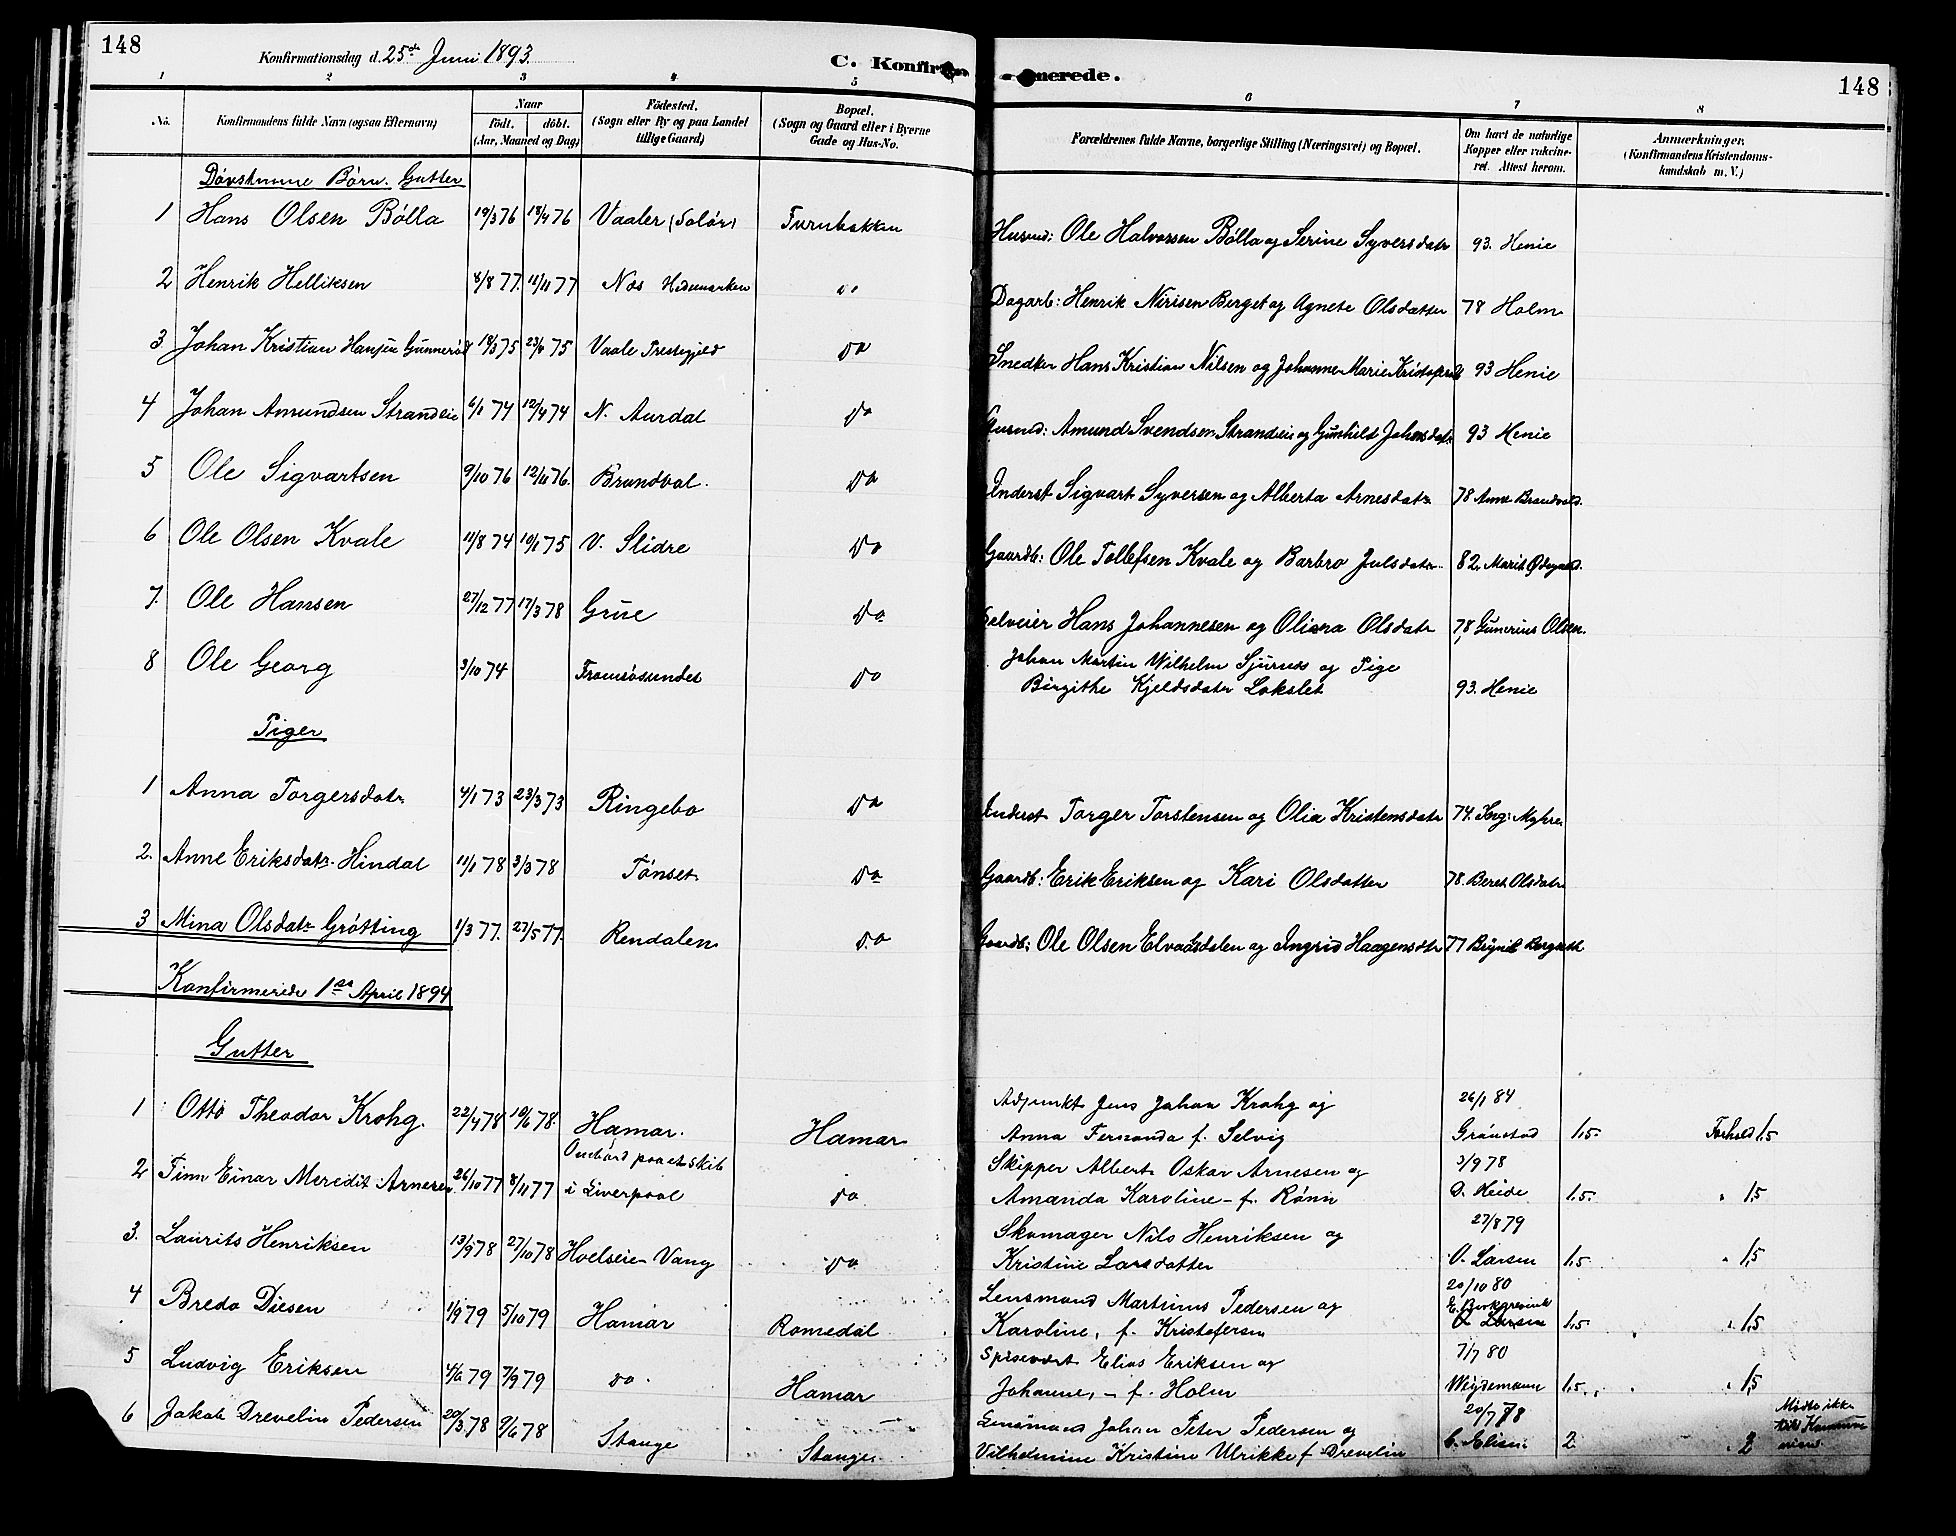 148
Konfirmationsdag d. 25de Juni 1893.
C. Konfir
merede.
148
1 2 3 4 5 6 7 8
No.
Konfirmandens fulde Navn (ogsaa Efternavn)
Naar
födt. döbt.
(Aar, Maaned og Dag)
Födested.
(Sogn eller By og paa Landet
tillige Gaard)
Bopæl.
(Sogn og Gaard eller i Byerne
Gade og Hus-No.
Forældrenes fulde Navne, borgerlige Stilling (Næringsvei) og Bopæl.
Om havt de naturlige
Kopper eller vakcine-
ret. Attest herom.
Anmærkninger.
(Konfirmandens Kristendoms-
kundskab m. V.)
Døvstumme Børn. Gutter
1 Hans Olsen Bølla 19/3 76 18/4 76 Vaaler (Solør) Furubakken Husmd: Ole Halvorsen Bølla og Serine Syversdatr 93. Henie
2 Henrik Helliksen 8/8 77. 11/11 77 Nes Hedemarken do Dagarb: Henrik Nirisen Berget og Agnete Olsdatter 78 Holm
3 Johan Kristian Hansen Gunnerød 18/3 75 75 Vaale Prestegjeld do Snedker Hans Kristian Nilsen og Johanne Marie 93 Henie
4 Johan Amundsen Strandeie 6/1 74 12/4 74 N. Aurdal do Husmd: Amund Svendsen Strandeie og Gunhild Johnsdatr 93 Henie
5 Ole Sigvartsen 9/10 76 12/11 76. Brandval. do Inderst Sigvart Syversen og Alberta Arnesdatr 78 Anne Brandvold.
6 Ole Olsen Kvale 11/8 74 10/1 75 V. Slidre do Gaardb: Ole Tollefsen Kvale og Barbro Julsdatr 82. Marit Ødegaard.
7. Ole Hansen 27/12 77 17/3 78 Grue do Selveier Hans Johannesen og Oliana Olsdatr 78, Gunerius Olsen.
8 Ole Georg 3/10 74 Tromsøsundet do Johan Martin Wilhelm Sjursnes og Pige
Birgithe Kjeldsdatr Lokslet 93. Henie
Piger
1 Anna Torgersdatr 4/1 73 23/3 73 Ringebo do Inderst Torger Torstensen og Olia Kristensdatr 74. Jørg: Myhre
2. Anne Eriksdatr Hindal 11/1 78 3/3 78 Tønset do Gaardb: Erik Eriksen og Kari Olsdatter 78. Beret Olsdatr
3 Mina Olsdatr Grøtting 1/3 77. 27/5 77. Rendalen do Gaardb: Ole Olsen Elvaasdalen og Ingrid Haagensdtr 77 Brynild Bergsett
Konfirmerede 1ste April 1894
Gutter
1 Otto Theodor Krohg. 22/4 78 10/6 78. Hamar. Hamar Adjunkt Jens Johan Krohg og
Anna Fernanda f. Selvig 26/1 84
Grønstad 1,5. Forhold 1,5
2 Finn Einar Meredit Arnesen 26/10 77 8/11 77 Ombord paa et skib
i Liverpool do Skipper Albert Oskar Arnesen og
Amanda Karoline - f. Rønn 3/9 78
O. Heide 1,5. " 1,5
3. Laurits Henriksen 13/9 78 27/10 78 Hoelseie Vang do Skomager Nils Henriksen og
Kristine Larsdatter 27/8 79
O. Larsen 1,5 " 1,5
4 Bredo Diesen 1/9 79 5/10 79 Hamar Romedal Lensmand Martinus Pedersen og
Karoline, f. Kristofersen 20/10 80
E. Borkgrevink
O. Larsen 1,5. " 1,5
5 Ludvig Eriksen 4/6 79 7/9 79 do Hamar Spisevært Elias Eriksen og
Johanne, - f. Holm 7/7 80
Weydemann 1,5. " 1,5
6 Jakob Drevelin Pedersen 20/3 78 9/6 78 Stange Stange Lensmand Johan Peter Pedersen og
Vilhelmine Kristine Ulrikke f. Drevelin 20/7 78
C. Elisen 2. " 2 Mødte ikke